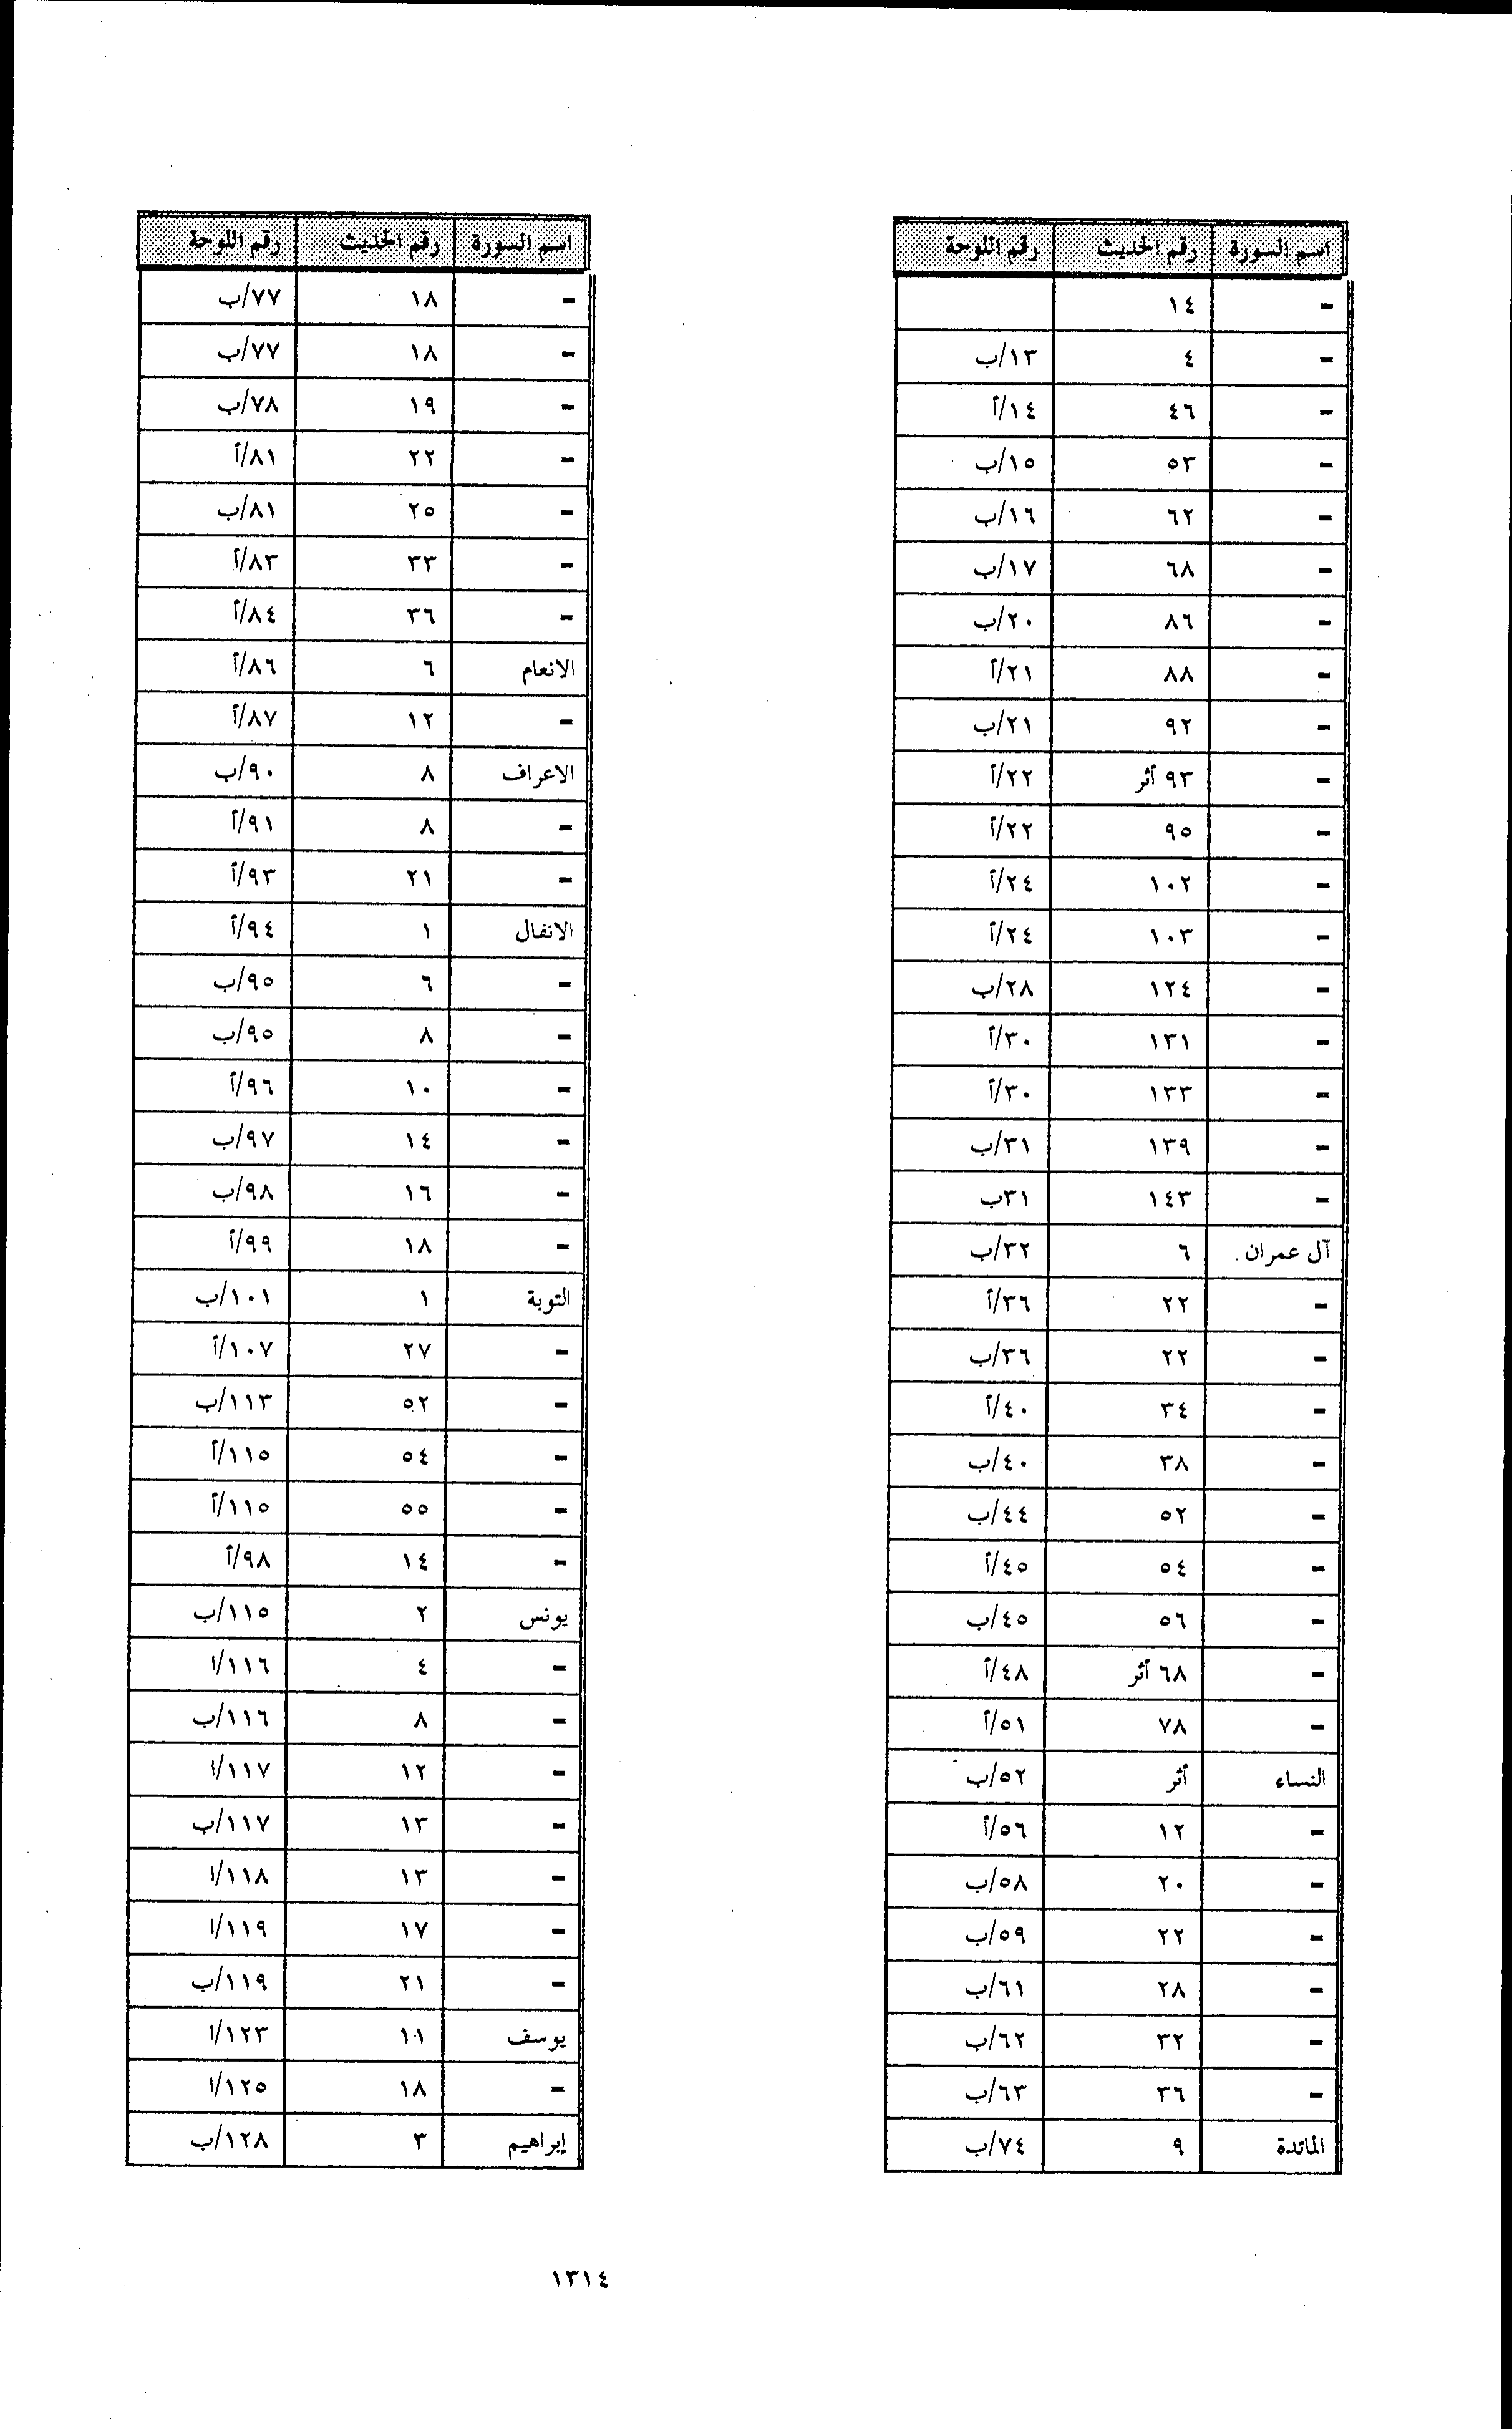 اسم السورة رقم الحديث رقم اللوحة
- ١٤
- ٤ ١٣/ب
- ٤٦ ١٤/أ
- ٥٣ ١٥/ب
- ٦٢ ١٦/ب
- ٦٨ ١٧/ب
- ٨٦ ٢٠/ب
- ٨٨ ٢١/أ
- ٩٢ ٢١/ب
- ٩٣ أثر ٢٢/أ
- ٩٥ ٢٢/أ
- ١٠٢ ٢٤/أ
- ١٠٣ ٢٤/أ
- ١٢٤ ٢٨/ب
- ١٣١ ٣٠/أ
- ١٣٣ ٣٠/أ
- ١٣٩ ٣١/ب
- ١٤٣ ٣١ب
آل عمران ٦ ٣٢/ب
- ٢٢ ٣٦/أ
- ٢٢ ٣٦/ب
- ٣٤ ٤٠/أ
- ٣٨ ٤٠/ب
- ٥٢ ٤٤/ب
- ٥٤ ٤٥/أ
- ٥٦ ٤٥/ب
- ٦٨ أثر ٤٨/أ
- ٧٨ ٥١/أ
النساء أثر ٥٢/ب
- ١٢ ٥٦/أ
- ٢٠ ٥٨/ب
- ٢٢ ٥٩/ب
- ٢٨ ٦١/ب
- ٣٢ ٦٢/ب
- ٣٦ ٦٣/ب
المائدة ٩ ٧٤/ب
اسم السورة رقم الحديث رقم اللوحة
- ١٨ ٧٧/ب
- ١٨ ٧٧/ب
- ١٩ ٧٨/ب
- ٢٢ ٨١/أ
- ٢٥ ٨١/ب
- ٣٣ ٨٣/أ
- ٣٦ ٨٤/أ
الانعام ٦ ٨٦/أ
- ١٢ ٨٧/أ
الاعراف ٨ ٩٠/ب
- ٨ ٩١/أ
- ٢١ ٩٣/أ
الانفال ١ ٩٤/أ
- ٦ ٩٥/ب
- ٨ ٩٥/ب
- ١٠ ٩٦/أ
- ١٤ ٩٧/ب
- ١٦ ٩٨/ب
- ١٨ ٩٩/أ
التوبة ١ ١٠١/ب
- ٢٧ ١٠٧/أ
- ٥٢ ١١٣/ب
- ٥٤ ١١٥/أ
- ٥٥ ١١٥/أ
- ١٤ ٩٨/أ
يونس ٢ ١١٥/ب
- ٤ ١١٦/ا
- ٨ ١١٦/ب
- ١٢ ١١٧/ا
- ١٣ ١١٧/ب
- ١٣ ١١٨/ا
- ١٧ ١١٩/ا
- ٢١ ١١٩/ب
يوسف ١١ ١٢٣/ا
- ١٨ ١٢٥/ا
إبراهيم ٣ ١٢٨/ب
١٣١٤